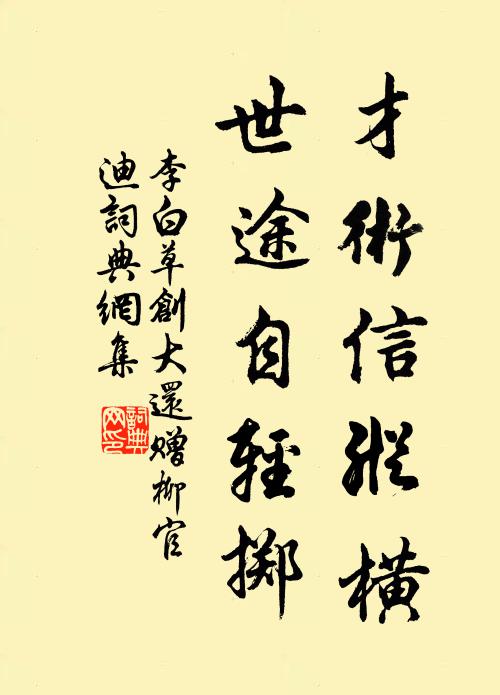 才術信縱橫
世途自輕擲
李白草創大還贈柳官
迪詞典網集
詞典
网印